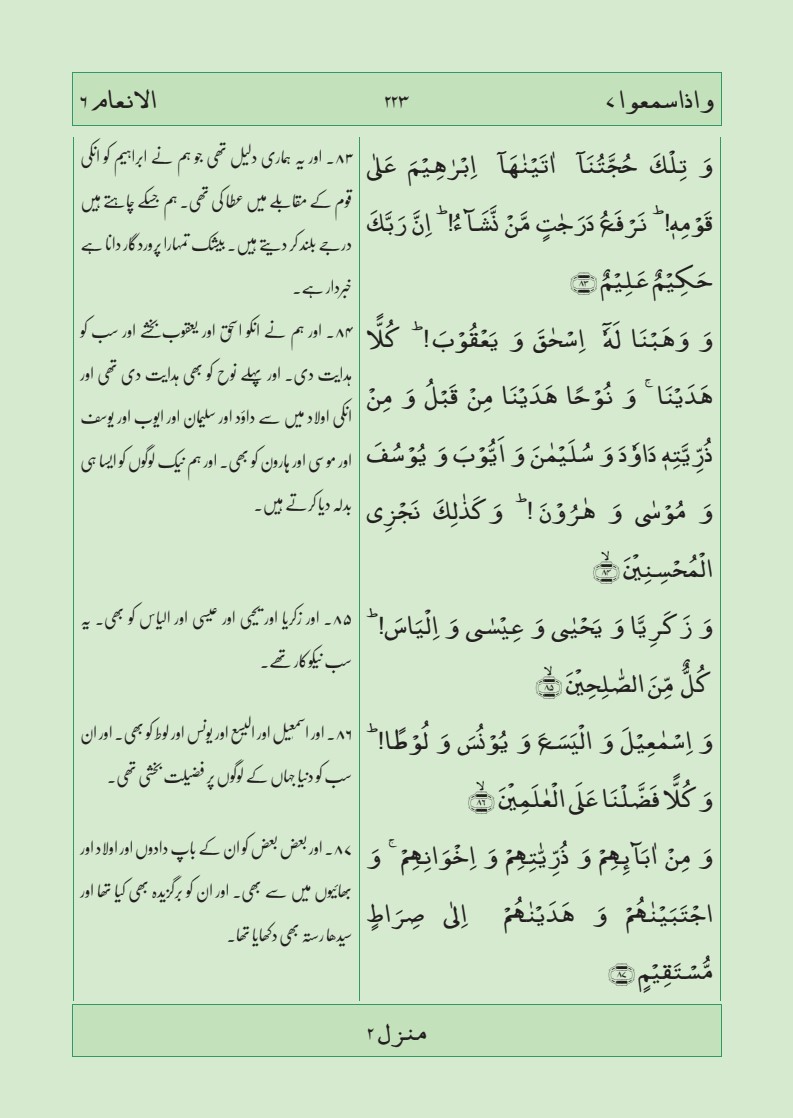 واذاسمعوا ۷
۲۲۳
الانعام ۶
وَ تِلۡكَ حُجَّتُنَاۤ اٰتَيۡنٰهَاۤ اِبۡرٰهِيۡمَ عَلٰى
قَوۡمِهٖ‌ؕ نَرۡفَعُ دَرَجٰتٍ مَّنۡ نَّشَآءُ‌ؕ اِنَّ رَبَّكَ
حَكِيۡمٌ عَلِيۡمٌ ﴿۸۳﴾
وَ وَهَبۡنَا لَهٗۤ اِسۡحٰقَ وَ يَعۡقُوۡبَ‌ؕ كُلًّا
هَدَيۡنَا‌ۚ وَ نُوۡحًا هَدَيۡنَا مِنۡ قَبۡلُ وَ مِنۡ
ذُرِّيَّتِهٖ دَاوٗدَ وَ سُلَيۡمٰنَ وَ اَيُّوۡبَ وَ يُوۡسُفَ
وَ مُوۡسٰى وَ هٰرُوۡنَ‌ؕ وَ كَذٰلِكَ نَجۡزِى
الۡمُحۡسِنِيۡنَۙ ﴿۸۴﴾
وَ زَكَرِيَّا وَ يَحۡيٰى وَ عِيۡسٰى وَ اِلۡيَاسَ‌ؕ
كُلٌّ مِّنَ الصّٰلِحِيۡنَۙ ﴿۸۵﴾
وَ اِسۡمٰعِيۡلَ وَ الۡيَسَعَ وَ يُوۡنُسَ وَ لُوۡطًا‌ؕ
وَ كُلًّا فَضَّلۡنَا عَلَى الۡعٰلَمِيۡنَۙ ﴿۸۶﴾
وَ مِنۡ اٰبَآٮِٕهِمۡ وَ ذُرِّيّٰتِهِمۡ وَ اِخۡوَانِهِمۡ‌ۚ وَ
اجۡتَبَيۡنٰهُمۡ وَ هَدَيۡنٰهُمۡ اِلٰى صِرَاطٍ
مُّسۡتَقِيۡمٍ ﴿۸۷﴾
۸۳۔ اور یہ ہماری دلیل تھی جو ہم نے ابراہیم کو انکی
قوم کے مقابلے میں عطا کی تھی۔ ہم جسکے چاہتے ہیں
درجے بلند کر دیتے ہیں۔ بیشک تمہارا پروردگار دانا ہے
خبردار ہے۔
۸۴۔ اور ہم نے انکو اسحٰق اور یعقوب بخشے اور سب کو
ہدایت دی۔ اور پہلے نوح کو بھی ہدایت دی تھی اور
انکی اولاد میں سے داؤد اور سلیمان اور ایوب اور یوسف
اور موسی اور ہارون کو بھی۔ اور ہم نیک لوگوں کو ایسا ہی
بدلہ دیا کرتے ہیں۔
۸۵۔ اور زکریا اور یحیی اور عیسی اور الیاس کو بھی۔ یہ
سب نیکوکار تھے۔
۸۶۔ اور اسمعیل اور الیسع اور یونس اور لوط کو بھی۔ اور ان
سب کو دنیا جہاں کے لوگوں پر فضیلت بخشی تھی۔
۸۷۔ اور بعض بعض کو ان کے باپ دادوں اور اولاد اور
بھائیوں میں سے بھی۔ اور ان کو برگزیدہ بھی کیا تھا اور
سیدھا رستہ بھی دکھایا تھا۔
منزل ۲